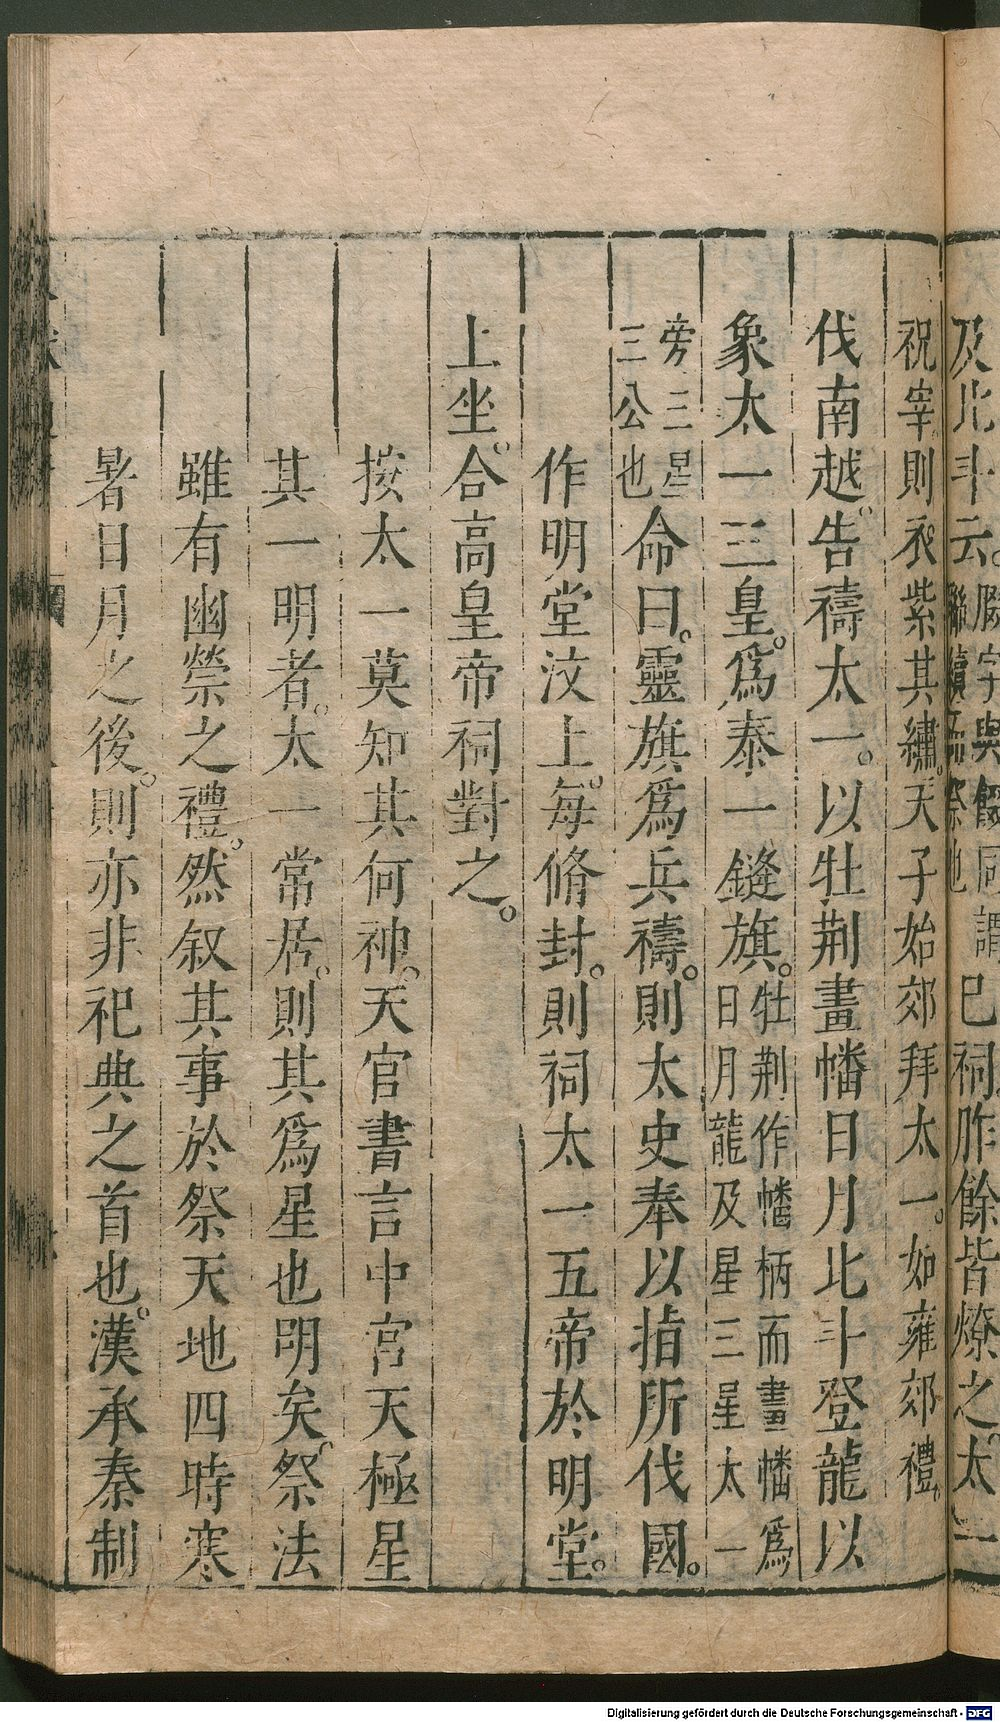 及北斗云。餟字與餟同謂
聯續而祭也
巳祠胙餘皆燎之。太一
祝宰則衣紫其繡。天子始郊拜太一。如雍郊禮。
伐南越。告禱太一。以牡荆畫幡日月北斗登龍以
象太一三皇。爲泰一鏠旗。牡荆作幡柄而畫幡爲
日月龍及星三星太一
旁三星
三公也
命曰。靈旗爲兵禱。則太史奉以指所伐國。
作明堂汶上。每脩封。則祠太一五帝於明堂。
上坐。合高皇帝祠對之。
按太一莫知其何神。天官書言中宮天極星
其一明者。太一常居。則其爲星也明矣。祭法
雖有幽禜之禮。然叙其事於祭天地四時寒
暑日月之後。則亦非祀典之首也。漢承秦制
Digitalisierung gefördert durch die Deutsche Forschungsgemeinschaft - DFG